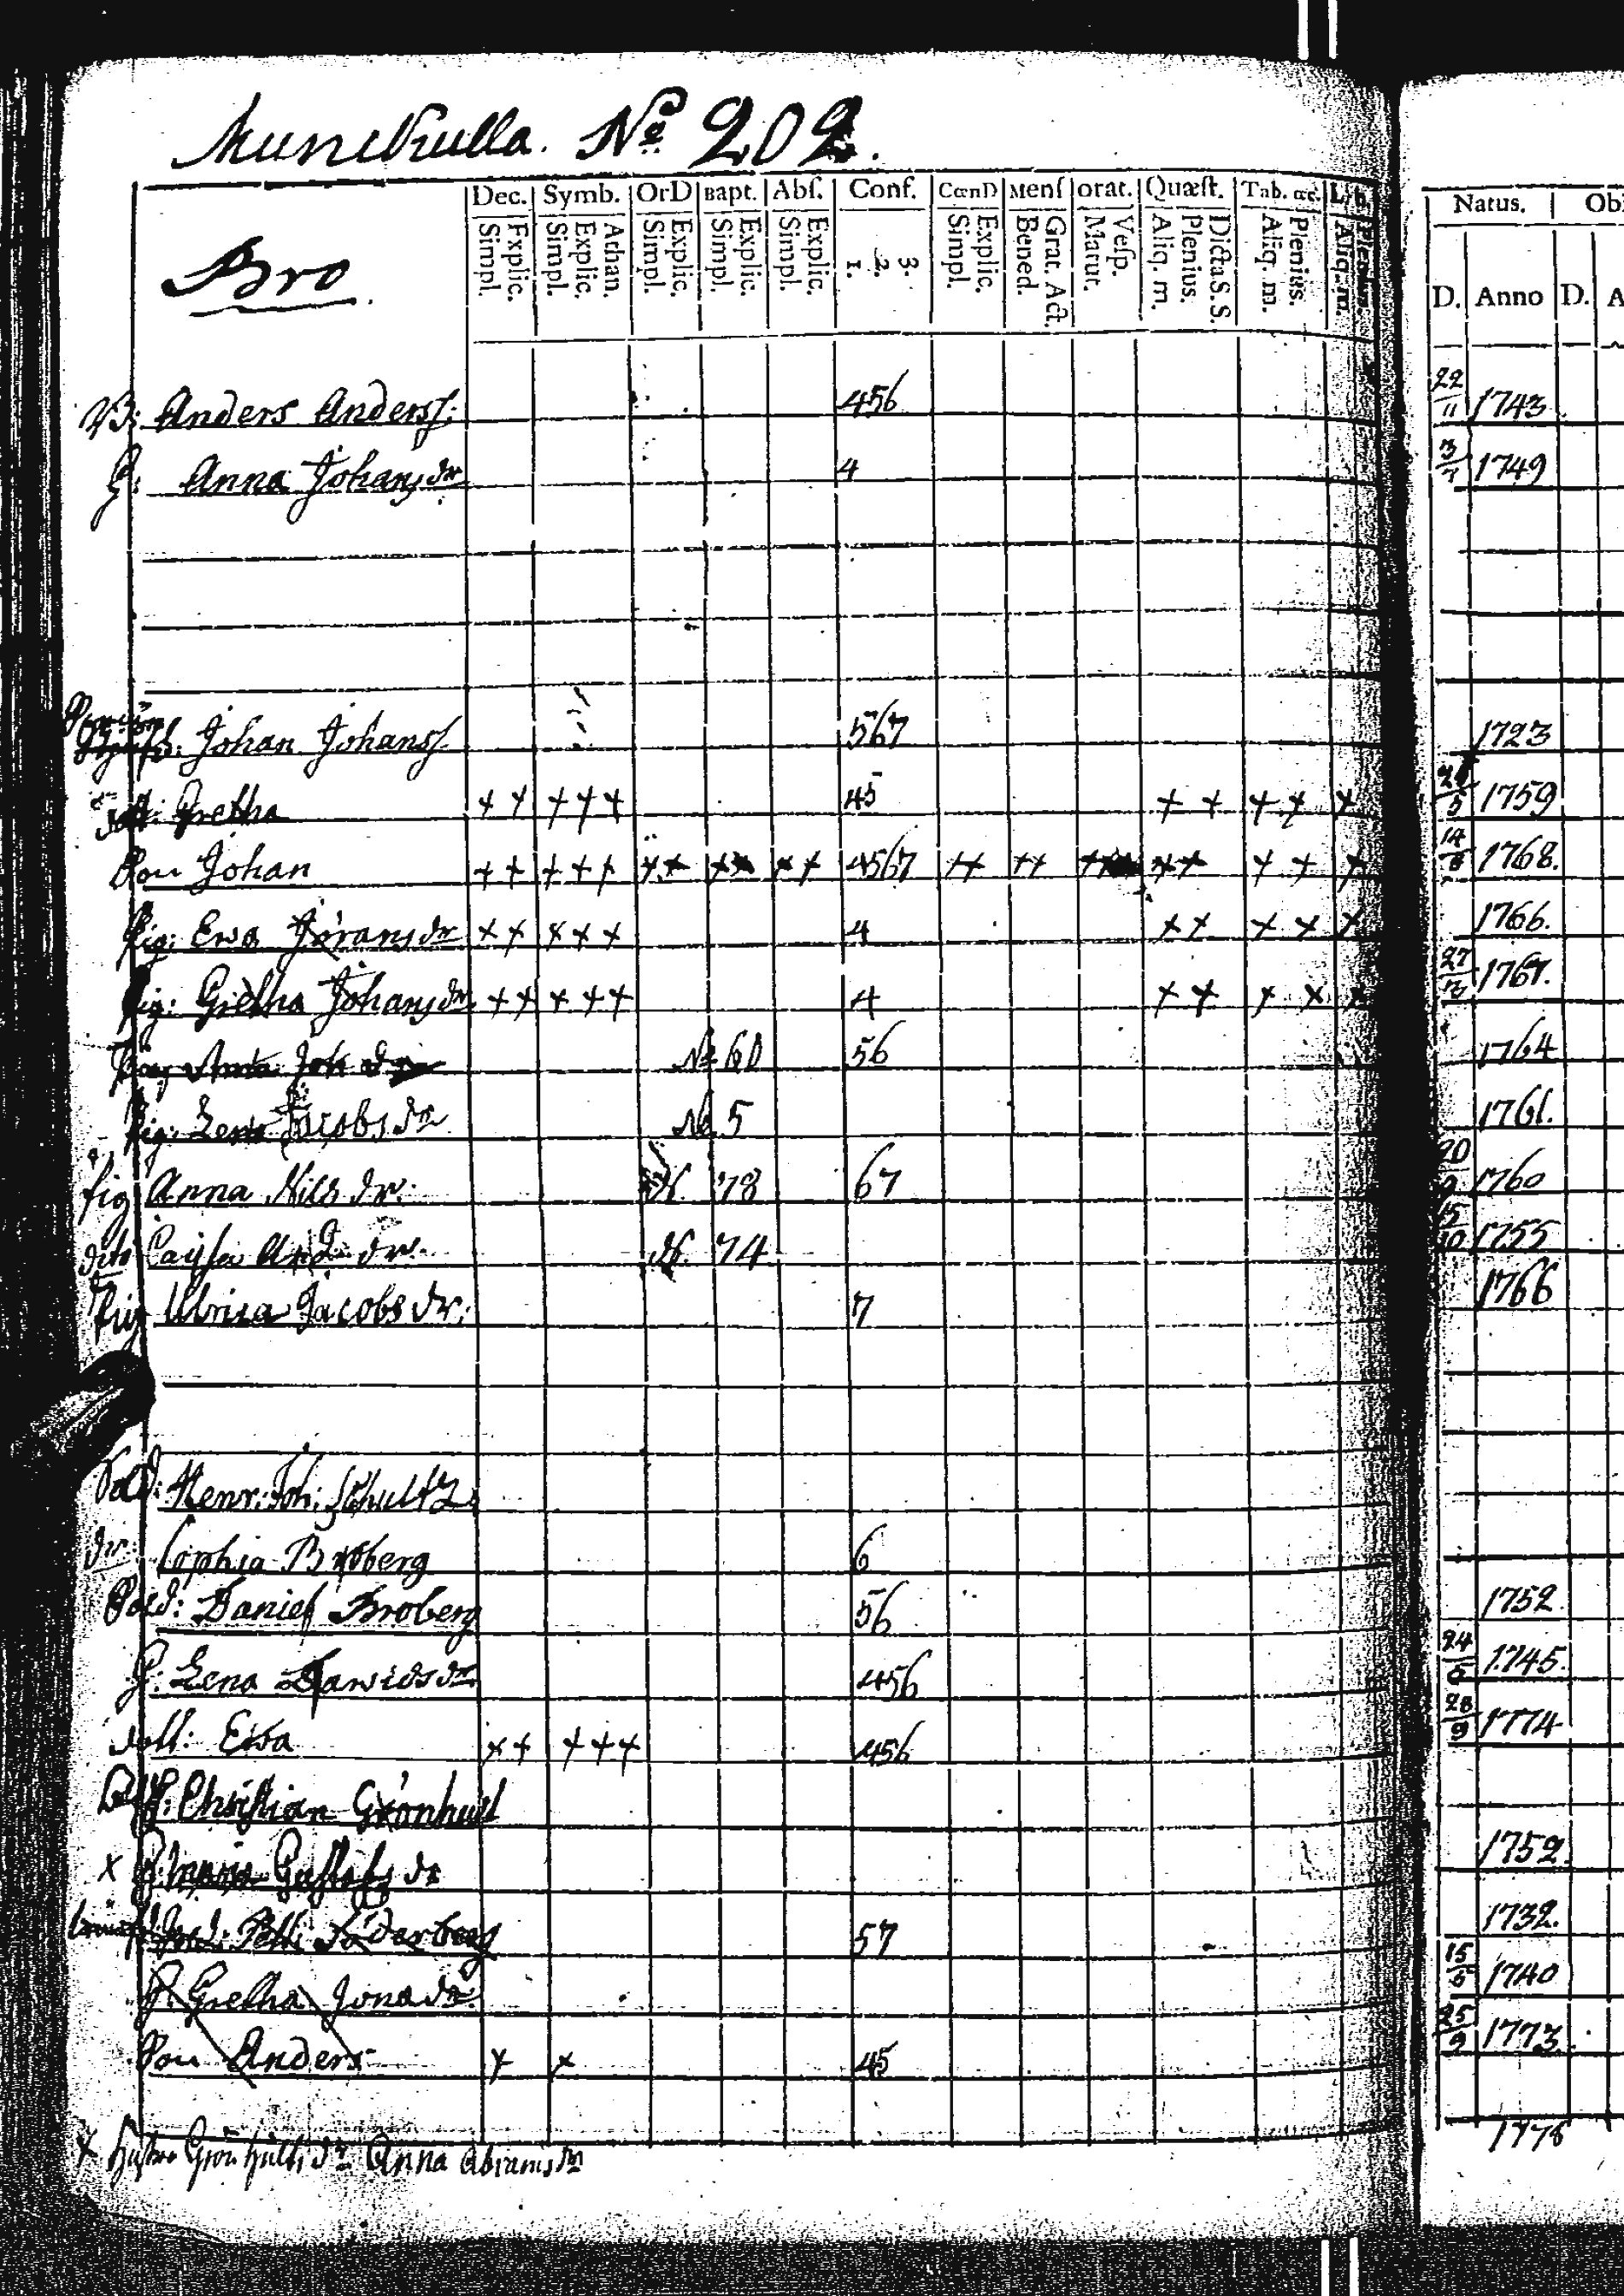 Munckulla. No 202.
Dec. Symb. OrD Bapt. Abſ. Conf. CœnD Menſ orat. Quæſt. Tab. œc. Lib. Natus. Obi
Simpl. Explic. Simpl. Explic. Athan. Simpl. Explic. Simpl. Explic. Simpl. Explic. 1. 2. 3. Simpl. Explic. Bened. Grat. Act. Matut. Veſp. Aliq. m. Plenius. Dicta S. S. Aliq. m. Plenius. Aliq. m. Plenius. D. Anno D. A
Bro
B: Anders Anderſ: 456 22/11 1743
H: Anna Johansdr 4 3/7 1749
Johan Johansſ. 567 1723
dott: Gretha ++ +++ 45 ++ ++ + 5 1759
Son Johan ++ +++ ++ ++ ++ 4567 ++ ++ ++ ++ ++ + 14/6 1768.
Pig: Ewa Jöransdr ++ +++ 4 ++ ++ + 1766.
Pig: Gretha Johansdr ++ +++ 4 ++ ++ + 27/3 1767.
Anna Joh dr No 60 56 1764
Pig: Lena Jacobsdr No 5 1761.
Pig Anna Nils dr. N. 78 67 1760
dito Cajsa And. dr. N. 74 15/10 1755
Pig Ulrica Jacobs dr. 7 1766
Sold: Henr: Joh: Schultz
dr Sophia Broberg 6
Sold: Daniel Broberg 56 1752
H: Lena Davidsdr 456 24/5 1745.
doll: Ewa ++ +++ 456 28/9 1774
Christian Grönhult
x H: Maria Gustafs dr 1752.
Sold: Pett: Söderberg 57 1732.
H: Gretha Jonadr. 15/5 1740
Son Anders + + 45 25/9 1773.
x Hustru Grönhults dr Anna Abramsdr 1778